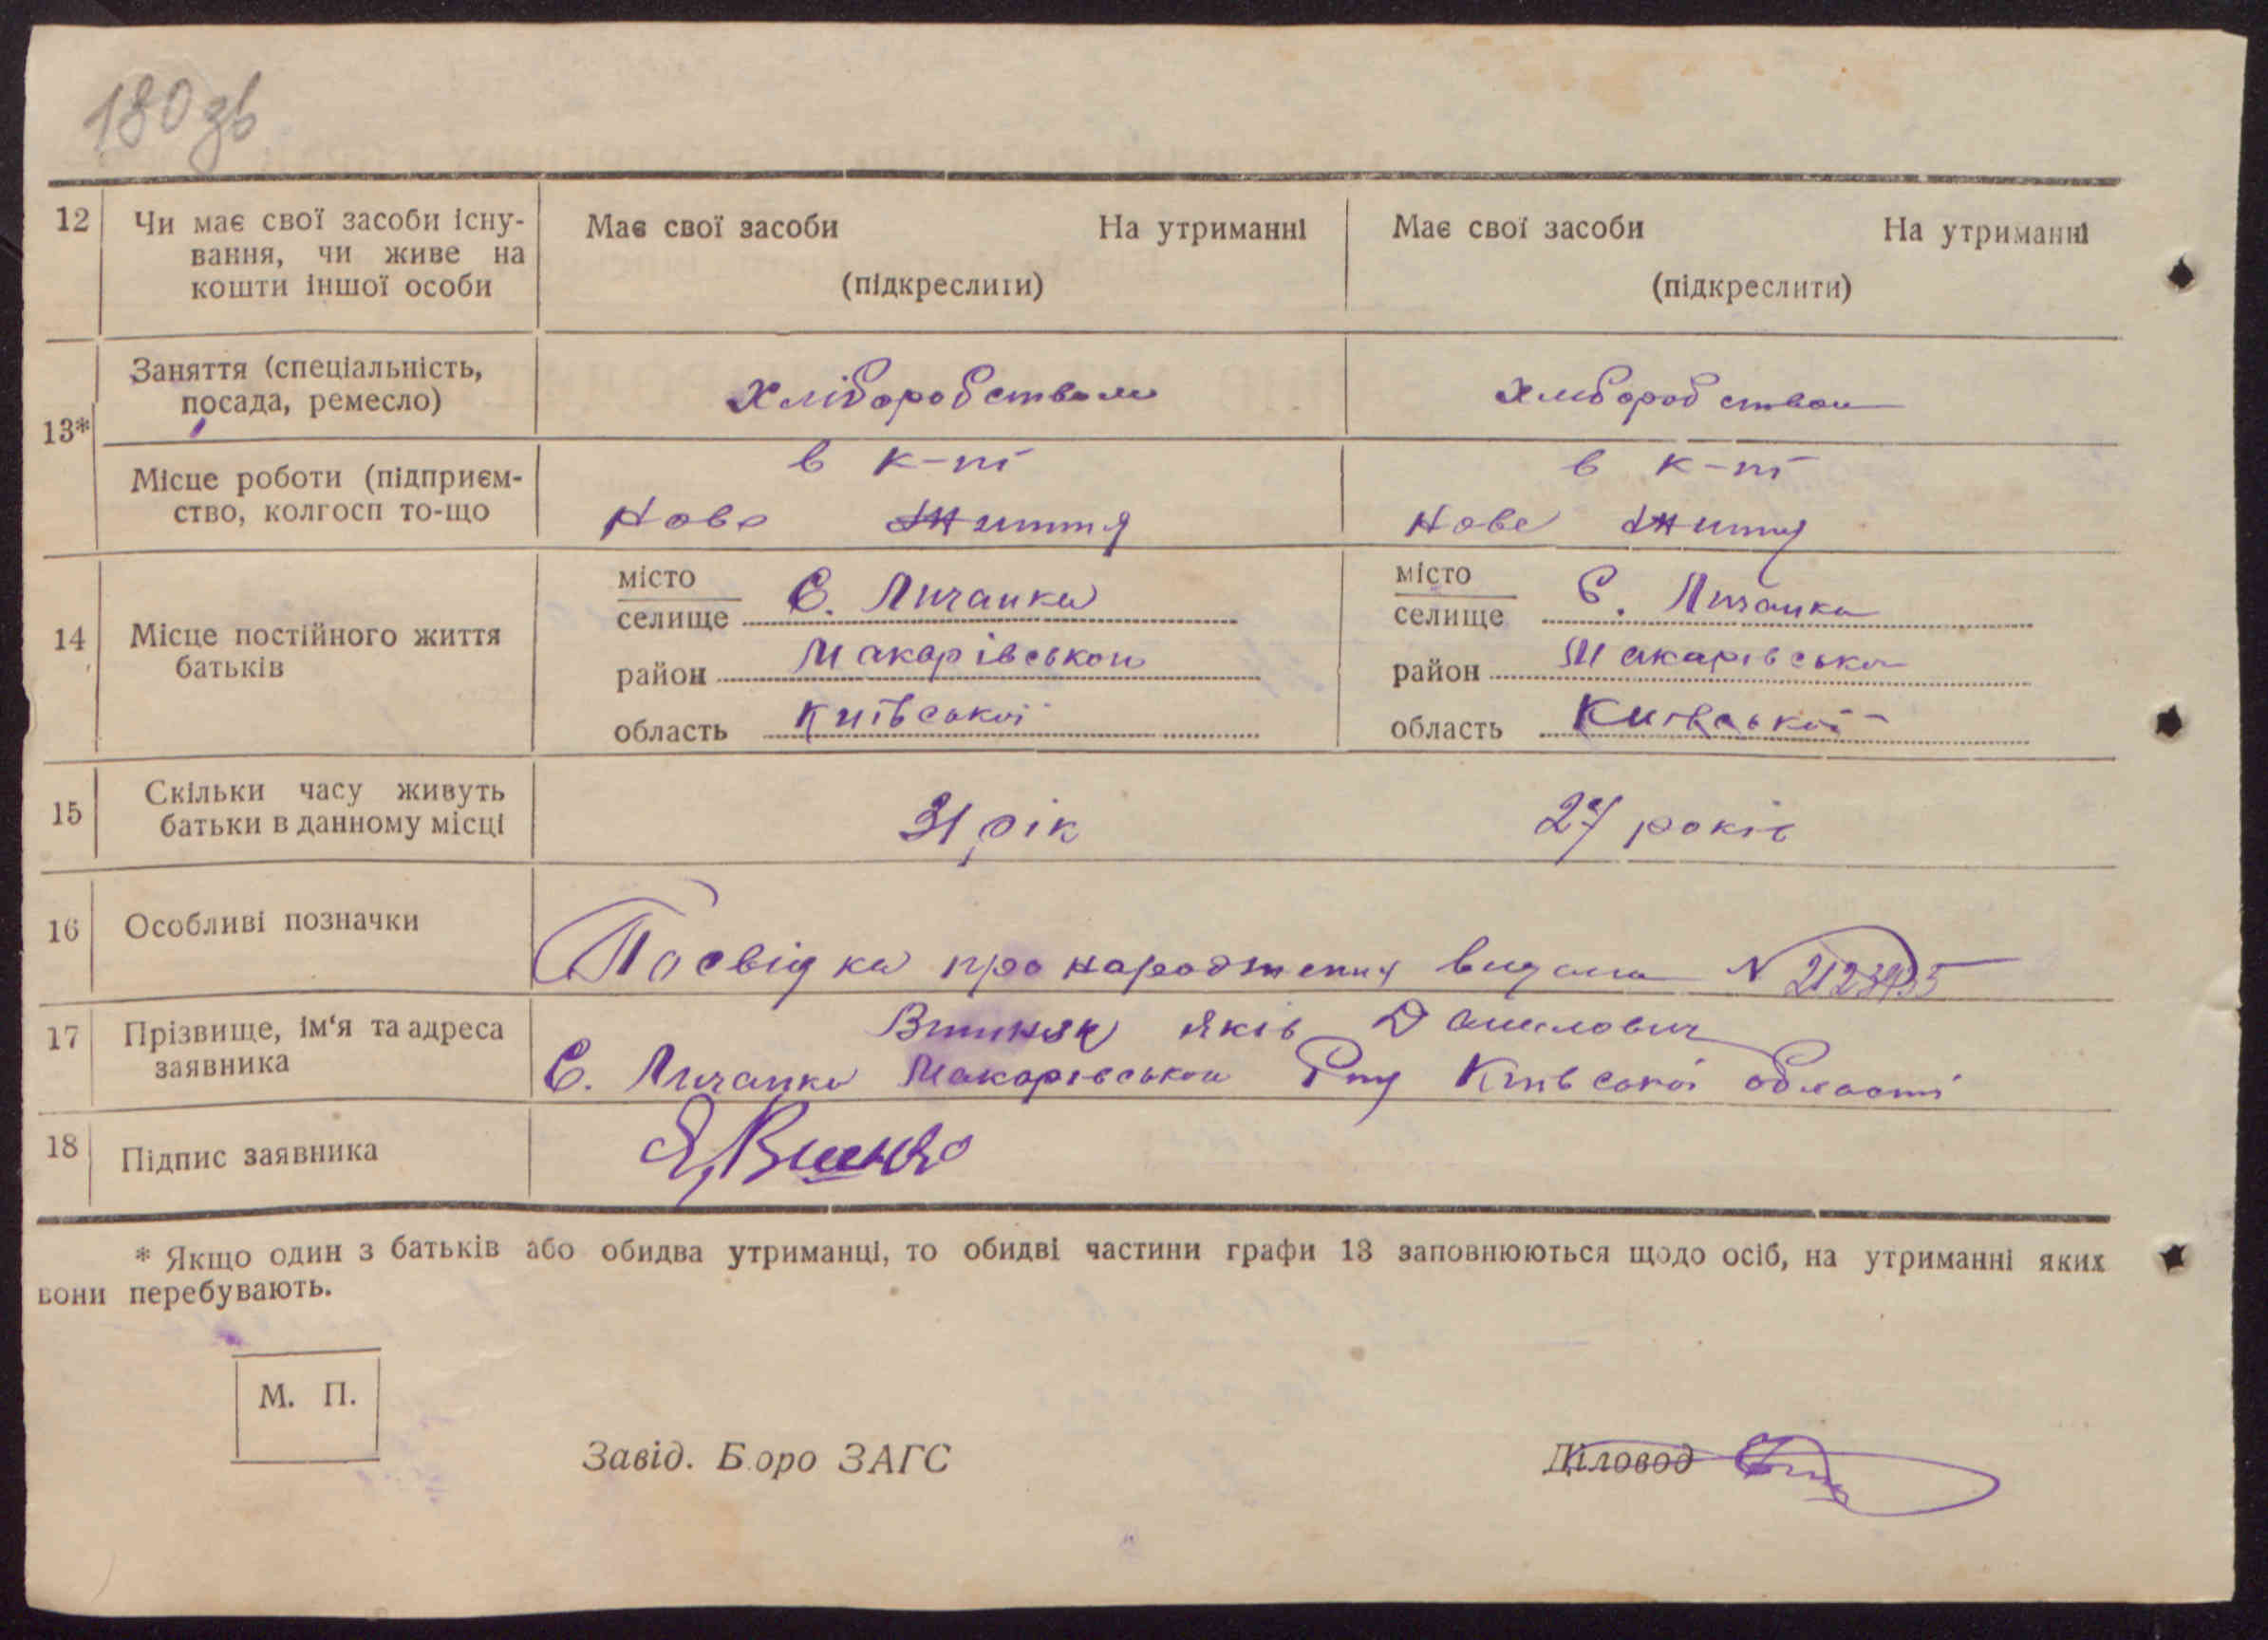 180 зв
12 Чи має свої засоби існу- Має свої засоби На утриманні Має свої засоби На утриманні
вання, чи живе на
кошти іншої особи (підкреслити) (підкреслити)
Заняття (спеціальність, Хліборобством Хліборобством
посада, ремесло)
13*
в к-пі в к-пі
Місце роботи (підприєм-
ство, колгосп то-що Нове Життя Нове Життя
місто місто
С. Личанка С. Личанка
селище селище
14 Місце постійного життя
батьків
район Макарівського район Макарівсько
область Київської область Київської
15 Скільки часу живуть 31 рік 27 років
батьки в данному місці
16 Особливі позначки
Посвідка про народження видана N
17 Прізвище, ім'я та адреса Яків Данилович
заявника С. Личанка Макарівського Р-ну Київської області
18 Підпис заявника
* Якщо один з батьків або обидва утриманці, то обидві частини графи 13 заповнюються щодо осіб, на утриманні яких
вони перебувають.
М. П.
Завід. Бюро ЗАГС Діловод